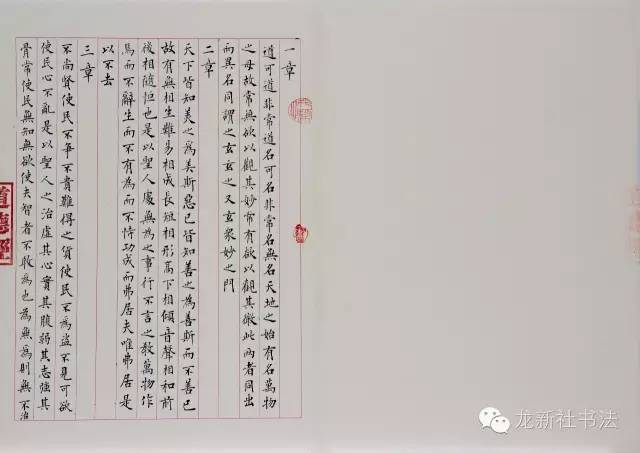 一章
道可道非常道名可名非常名無名天地之始有名萬物
之母故常無欲以觀其妙常有欲以觀其徼此兩者同出
而異名同謂之玄玄之又玄眾妙之門
二章
天下皆知美之為美斯惡已皆知善之為善斯不善已
故有無相生難易相成長短相形高下相傾音聲相和前
後相隨恒也是以聖人處無為之事行不言之教萬物作
焉而不辭生而不有為而不恃功成而弗居夫唯弗居是
以不去
三章
不尚賢使民不爭不貴難得之貨使民不為盜不見可欲
使民心不亂是以聖人之治虛其心實其腹弱其志強其
骨常使民無知無欲使夫智者不敢為也為無為則無不治
道德經
龙新社书法